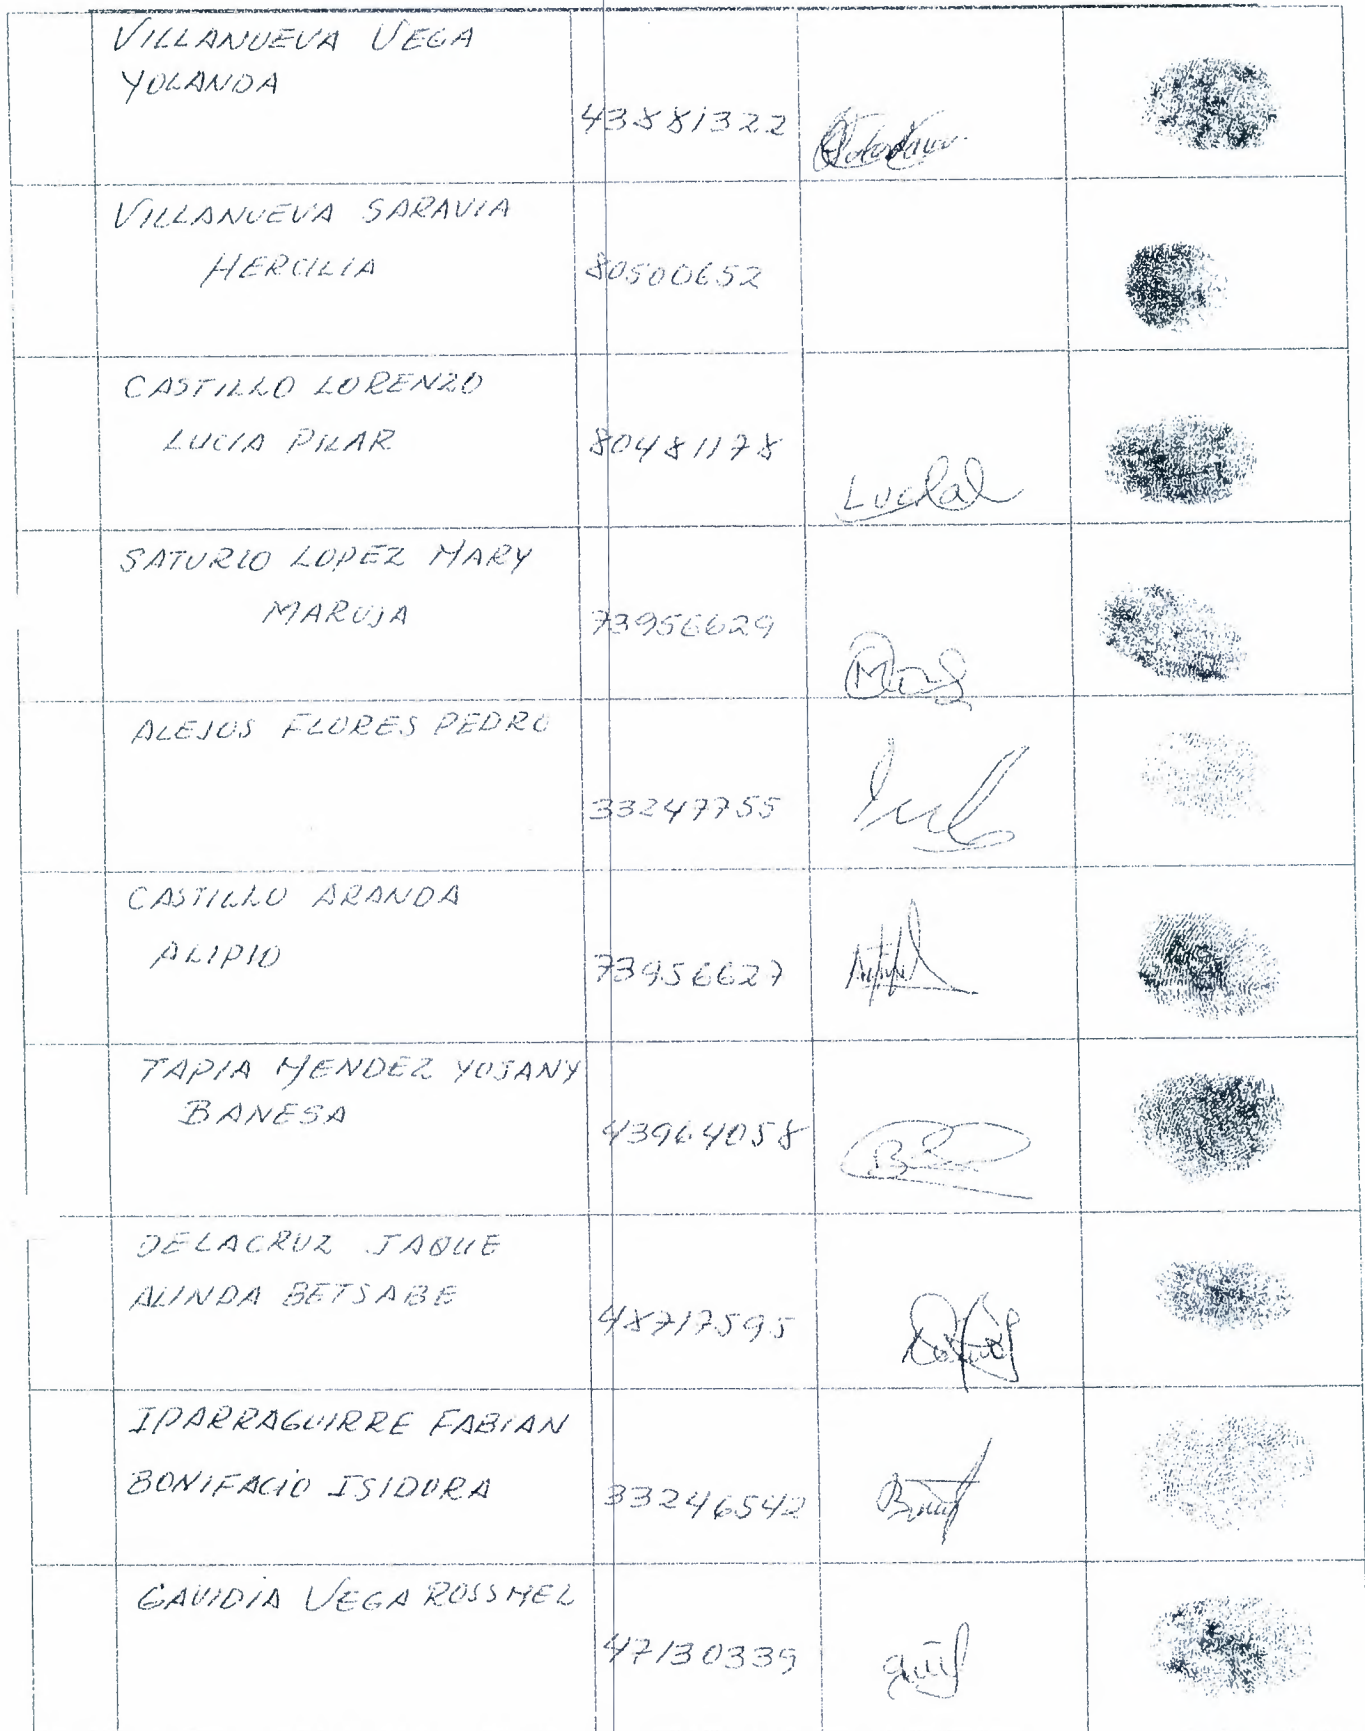 VILLANUEVA VEGA
YOLANDA
43881322
VILLANUEVA SARAVIA
HERCILIA
80500652
CASTILLO LORENZO
LUCIA PILAR
80481178
SATURIO LOPEZ MARY
MARUJA
73956629
ALEJOS FLORES PEDRO
33247755
CASTILLO ARANDA
ALIPIO
73956627
TAPIA MENDEZ YOJANY
BANESA
43964058
DELACRUZ JAQUE
ALINDA BETSABE
48717595
IPARRAGUIRRE FABIAN
BONIFACIO ISIDORA
33246542
GAVIDIA VEGA ROSSMEL
47130339